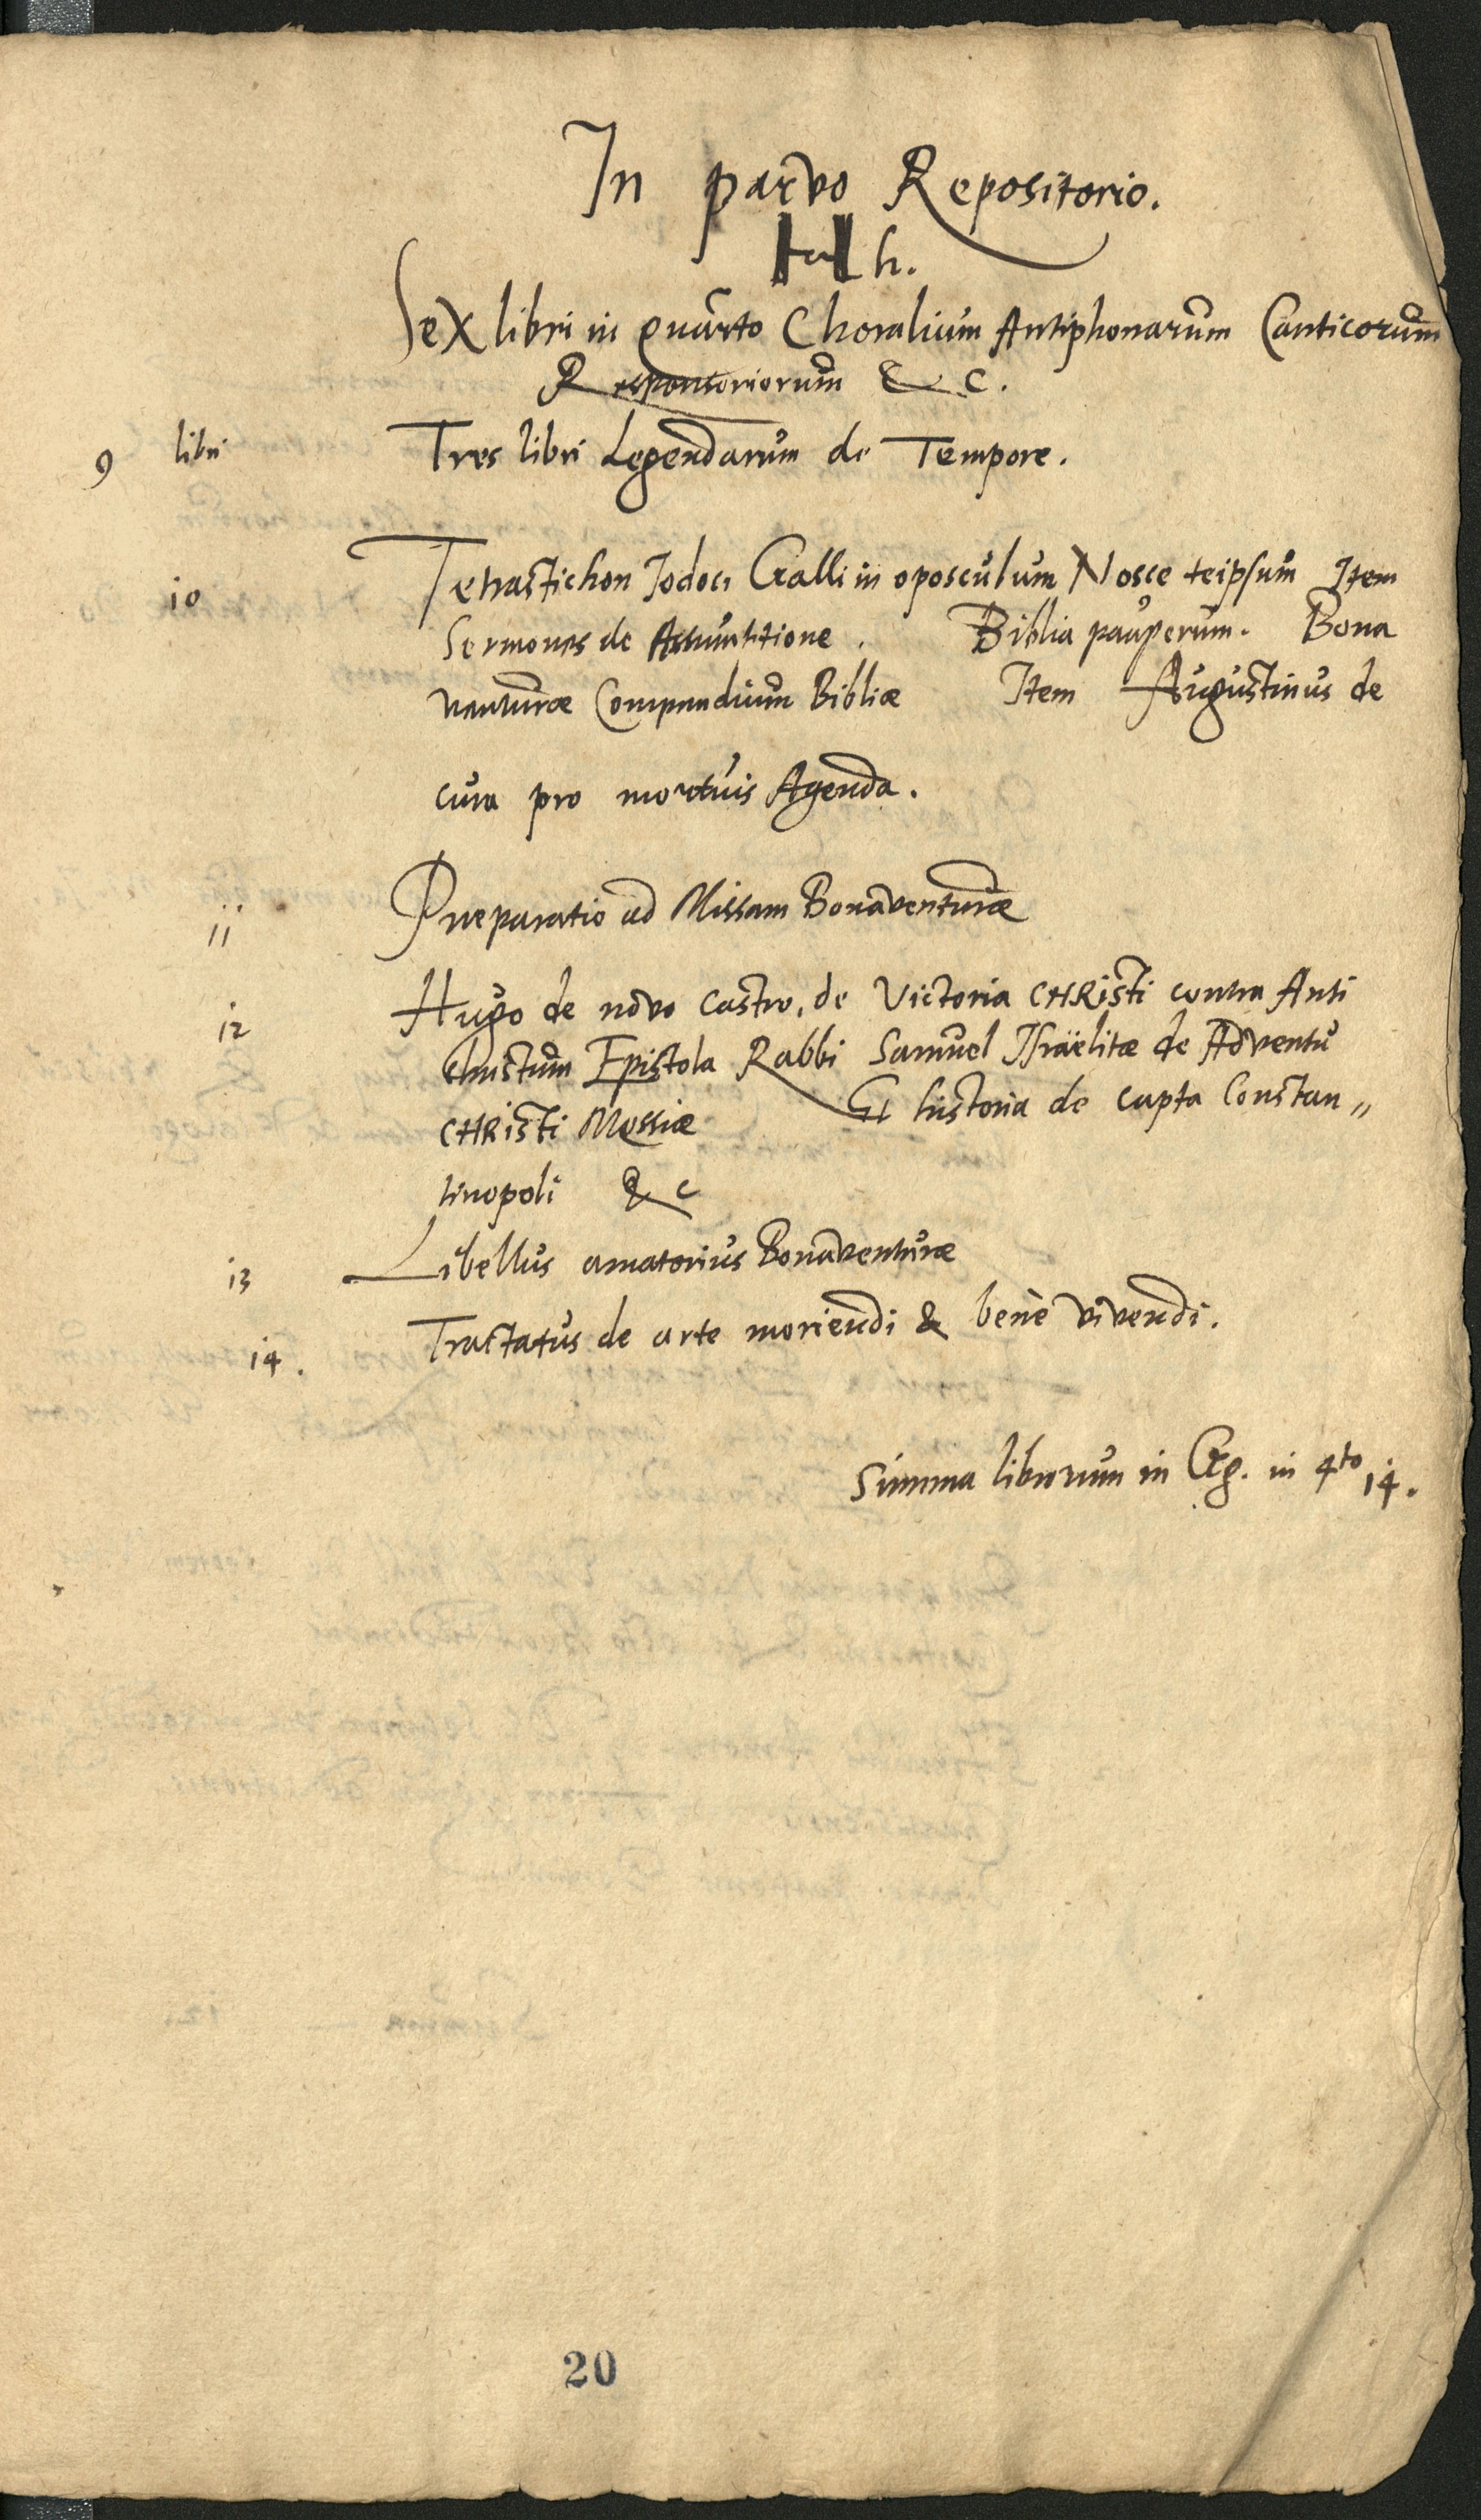 In parvo Repositorio.
H h.
Sex libri in quarto Choralium Antiphonarum Canticorum
Responsoriorum & c.
9 libri Tres libri Legendarum de Tempore.
10 Tetrastichon Jodoci Galli in oposculum Nosce teipsum Item
Sermones de . Biblia pauperum. Bona
venturæ Compendium Bibliæ Item Augustinus de
cura pro mortuis Agenda.
11 Præparatio ad Missam Bonaventuræ
12 Hugo de novo Castro, de Victoria CHRisti contra Anti
christum Epistola Rabbi Samuel Israëlitæ de Adventu
CHRisti Messiæ Et historia de capta Constan„
tinopoli & c
13 Libellus amatorius Bonaventuræ
14. Tractatus de arte moriendi & benè vivendi.
Summa librorum in in 4to 14.
20